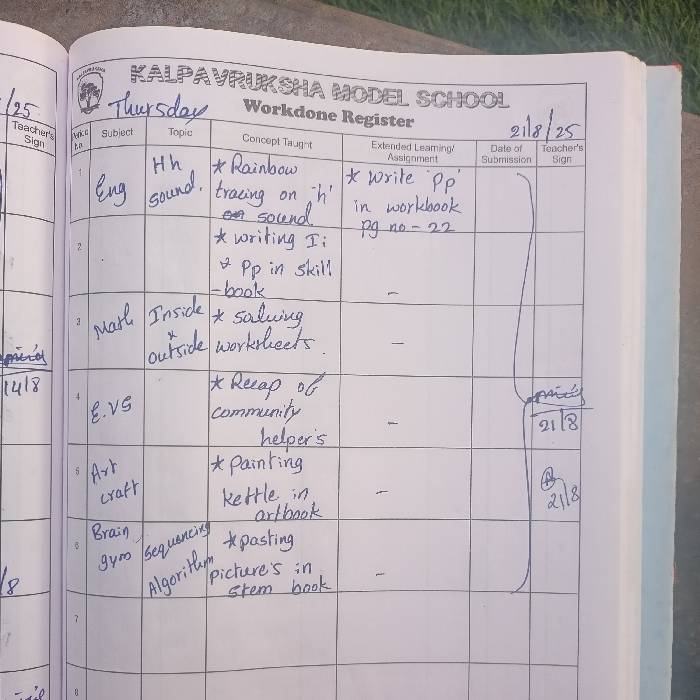 KALPAVRUKSHA MODEL SCHOOL
Thursday
Workdone Register
21/8/25
/25
Teacher's
Sign
14/8
/8
Period No. Subject Topic Concept Taught Extended Learning/ Assignment Date of Submission Teacher's Sign
1 Eng Hh sound. * Rainbow tracing on 'h' sound * Write 'Pp' in workbook pg no - 22
2 * writing Ii & Pp in skill -book -
3 Math Inside * outside * Solving worksheets. -
4 E.VS * Recap of community helper's - 21/8
5 Art craft * painting kettle in artbook - 21/8
6 Brain gym Sequencing Algorithm * pasting picture's in stem book -
7
8